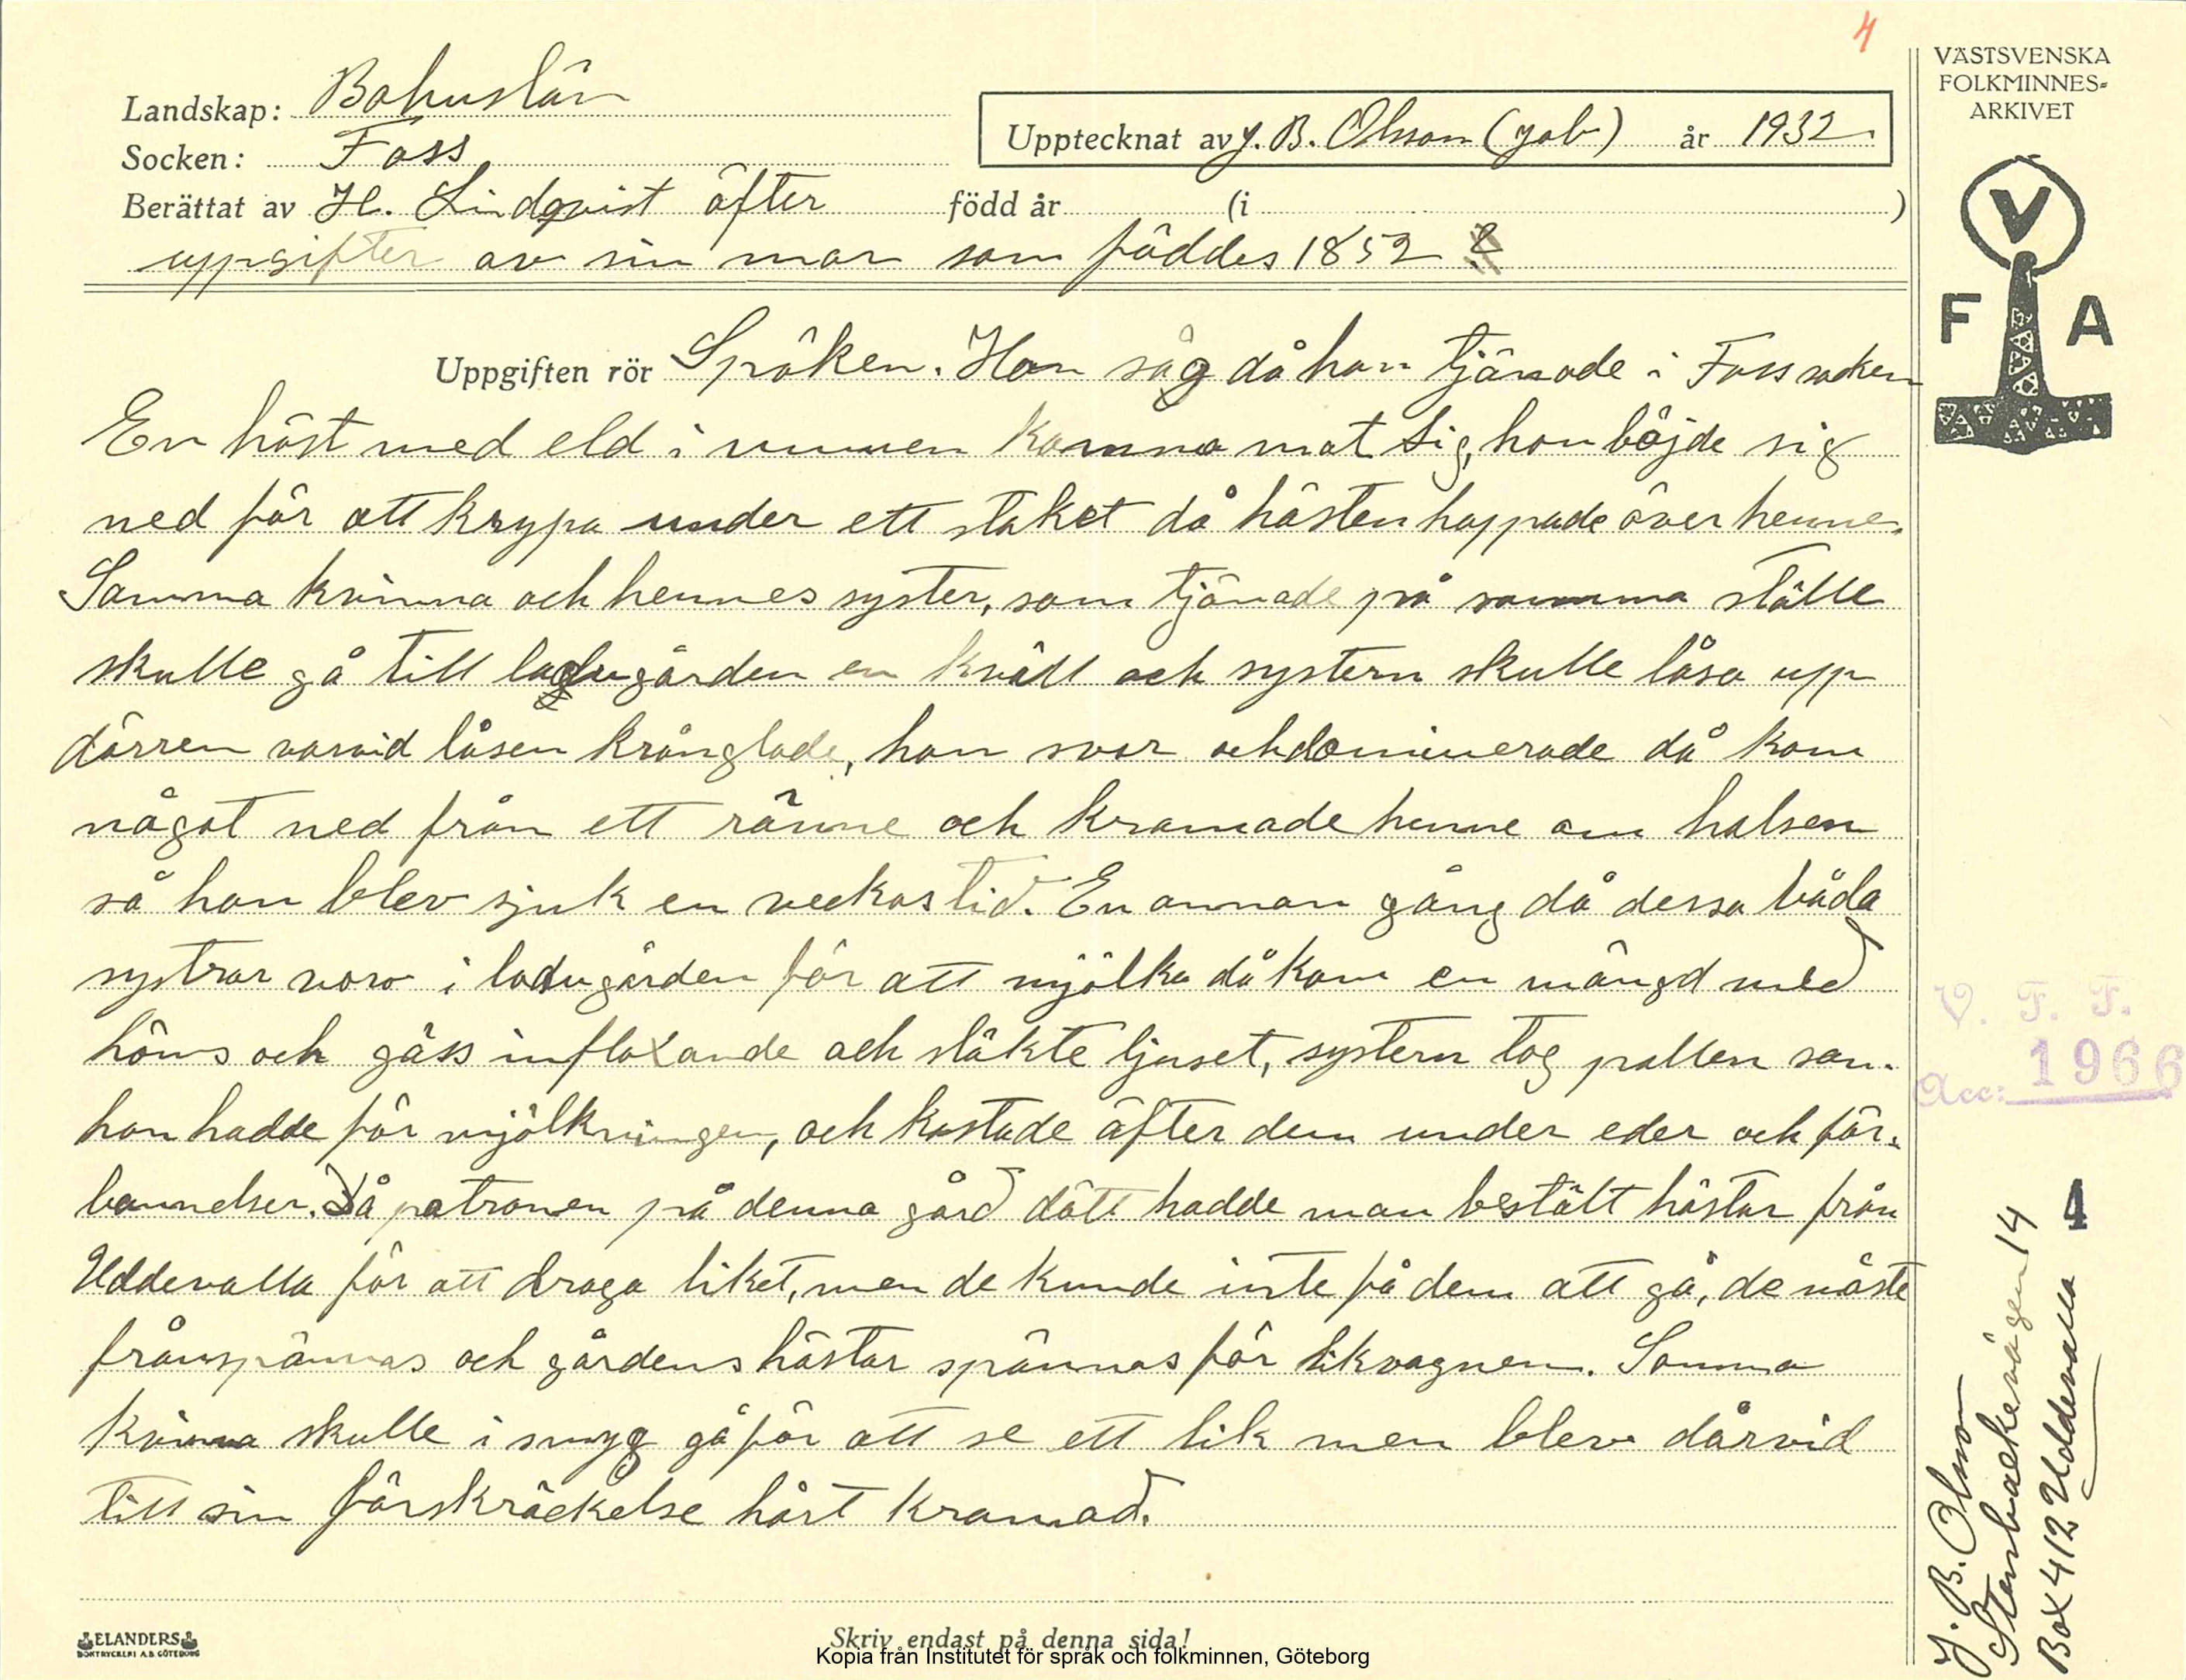 4
VÄSTSVENSKA
FOLKMINNES-
ARKIVET
V
F A
Landskap: Bohuslän
Socken: Foss
Upptecknat av J. B. Olsson (job) år 1932
Berättat av H. Lindqvist äfter född år (i )
uppgifter av sin mor som föddes 1852
Uppgiften rör Spöken. Hon såg då hon tjänade i Foss socken
En häst med eld i munnen komma mot sig, hon böjde sig
ned för att krypa under ett staket då hästen hoppade över henne.
Samma kvinna och hennes syster, som tjänade på samma ställe
skulle gå till ladugården en kväll och systern skulle låsa upp
dörren varvid låsen krånglade, hon svor och dominerade då kom
något ned från ett ränne och kramade henne om halsen
så hon blev sjuk en veckas tid. En annan gång då dessa båda
systrar voro i ladugården för att mjölka då kom en mängd med
höns och gäss inflaxande och släkte ljuset, systern tog pallen som
hon hadde för mjölkningen, och kastade äfter dem under eder och för-
bannelser. Då patronen på denna gård dött hadde man bestält hästar från
Uddevalla för att draga liket, men de kunde inte få dem att gå, de måste
frånspännas och gårdens hästar spännas för likvagnen. Samma
kvinna skulle i smyg gå för att se ett lik men blev därvid
till sin förskräckelse hårt kramad.
V. F. F.
Acc: 1966
4
J. B. Olsson
Stenbackevägen 14
Box 412 Uddevalla
ELANDERS
BOKTRYCKERI A.B. GÖTEBORG
Skriv endast på denna sida!
Kopia från Institutet för språk och folkminnen, Göteborg